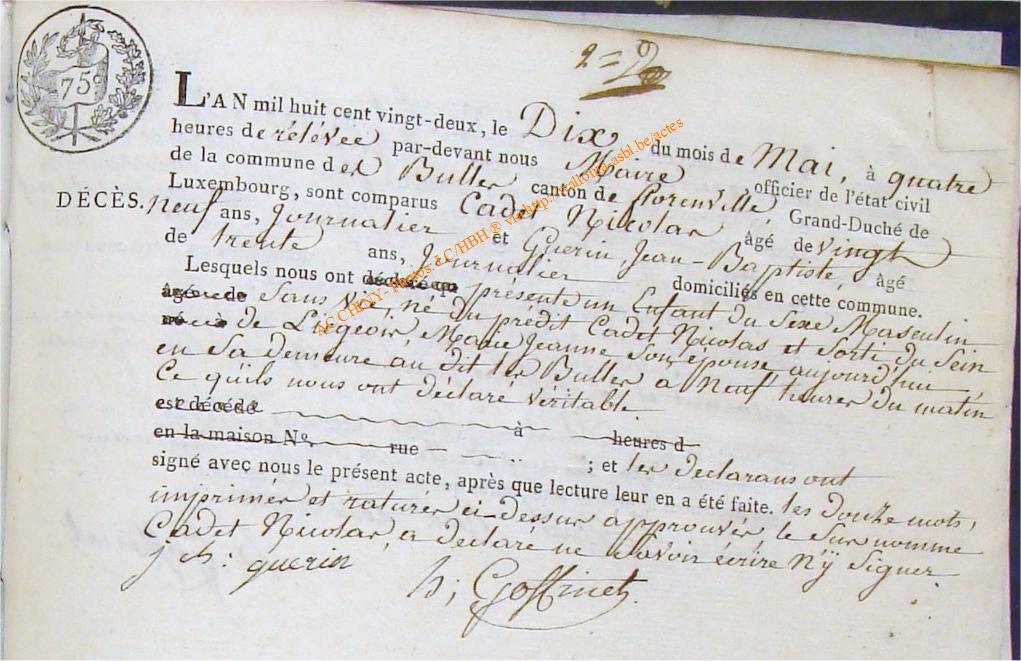 75c
2 =
L'AN mil huit cent vingt-deux, le Dix du mois de Mai, à quatre
heures de rélévée par-devant nous Maire officier de l'état civil
de la commune des Bulles canton de Florenville, Grand-Duché de
Luxembourg, sont comparus Cadet Nicolas âgé de vingt
DÉCÈS.
neuf ans, Journalier et Guerin, Jean-Baptiste âgé
de trente ans, Journalier domiciliés en cette commune.
Lesquels nous ont déclaré que présenté un Enfant du Sexe Masculin
âgé de Sans vie, né du prédit Cadet Nicolas et Sorti du Sein
né à de Liégeois, Marie Jeanne Son épouse aujourd'hui
en Sa demeure au dit les Bulles à Neuf heures du matin
Ce qu'ils nous ont déclaré véritable.
est décédé à heures d
en la maison N° rue ; et les déclarans ont
signé avec nous le présent acte, après que lecture leur en a été faite. les douze mots,
imprimés et raturés ci-dessus approuvés, le Surnommé
Cadet Nicolas, a déclaré ne Savoir écrire Ny Signer.
j b: guerin h; Goffinet
AC CHINY- Photos LC/HBH ® via http://wallonia-asbl.be/actes